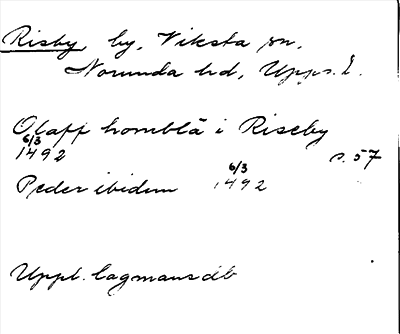 Risby, by, Viksta sn,
Norunda hd, Upps. l.
Olaff homblå i Riseby
6/3
1492 s. 57
Peder ibidem 6/3 1492
Uppl. lagmansdb